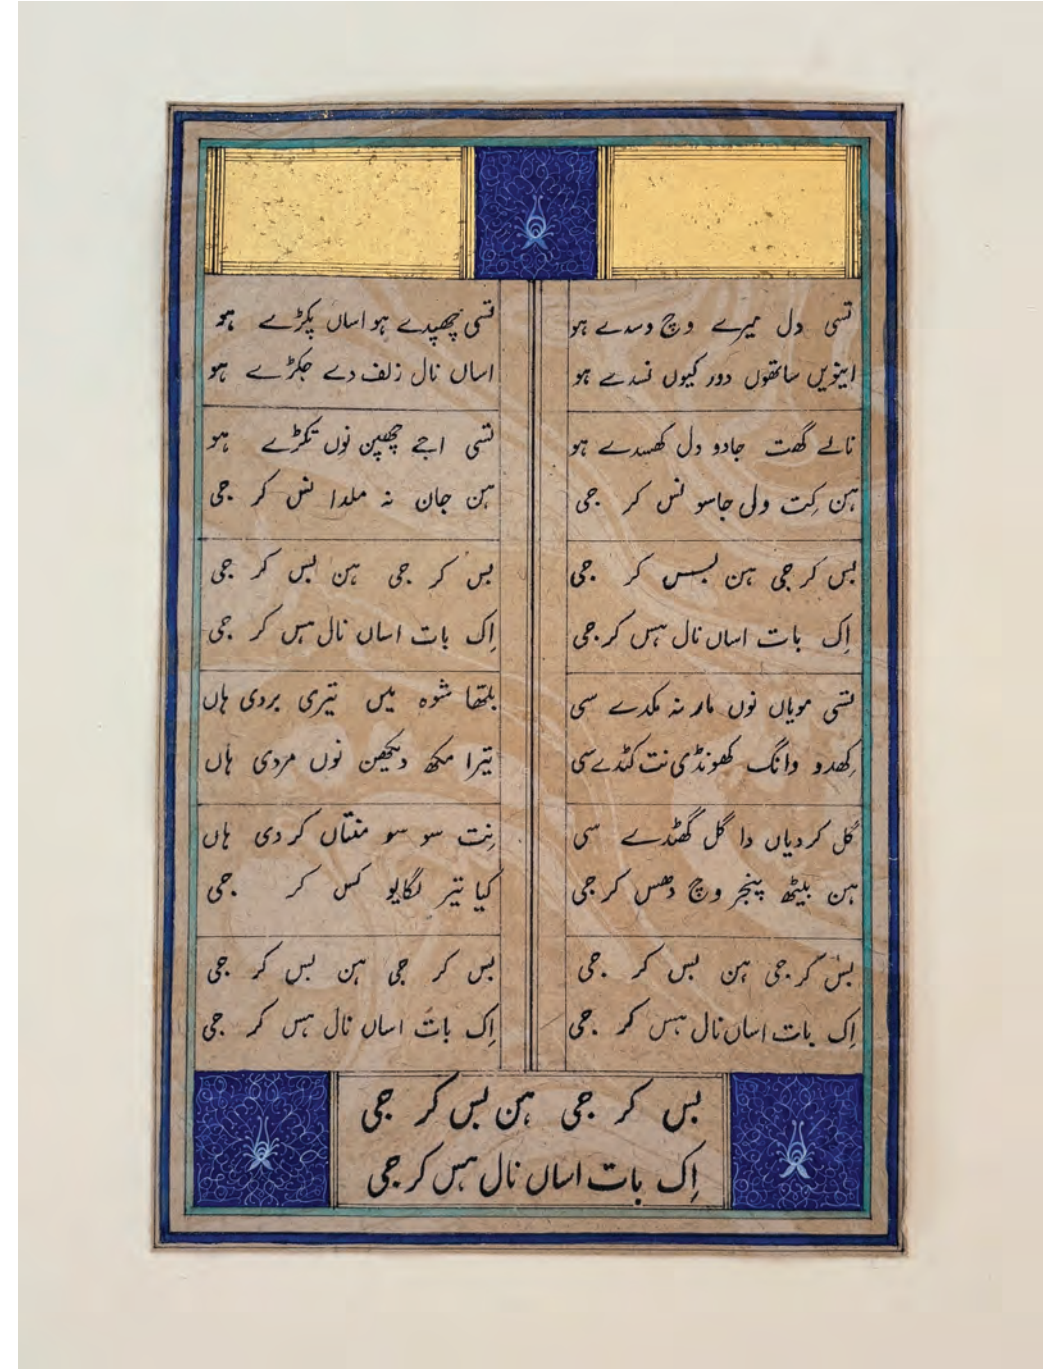 تسی دل میرے وچ وسدے ہو
اینویں ساتھوں دور کیوں نسدے ہو
نالے گھت جادو دل کھسدے ہو
ہن کِت ولی جاسو نس کر جی
بس کر جی ہن بس کر جی
اِک بات اساں نال ہس کر جی
تسی مویاں نوں مار نہ مکدے سی
کِھدو وانگ کھونڈی نت کٹدے سی
گل کردیاں دا گل گھٹدے سی
ہن بیٹھ پنجر وچ دھس کر جی
بس کر جی ہن بس کر جی
اِک بات اساں نال ہس کر جی
تسی چھپدے ہو اساں پکڑے ہو
اساں نال زلف دے جکڑے ہو
تسی اجے چھپن نوں تکڑے ہو
ہن جان نہ ملدا نس کر جی
بس کر جی ہن بس کر جی
اِک بات اساں نال ہس کر جی
بلھا شوہ میں تیری بردی ہاں
تیرا مکھ دیکھن نوں مردی ہاں
نِت سو سو منتاں کردی ہاں
کیا تیر لگایو کس کر جی
بس کر جی ہن بس کر جی
اِک بات اساں نال ہس کر جی
بس کر جی ہن بس کر جی
اِک بات اساں نال ہس کر جی